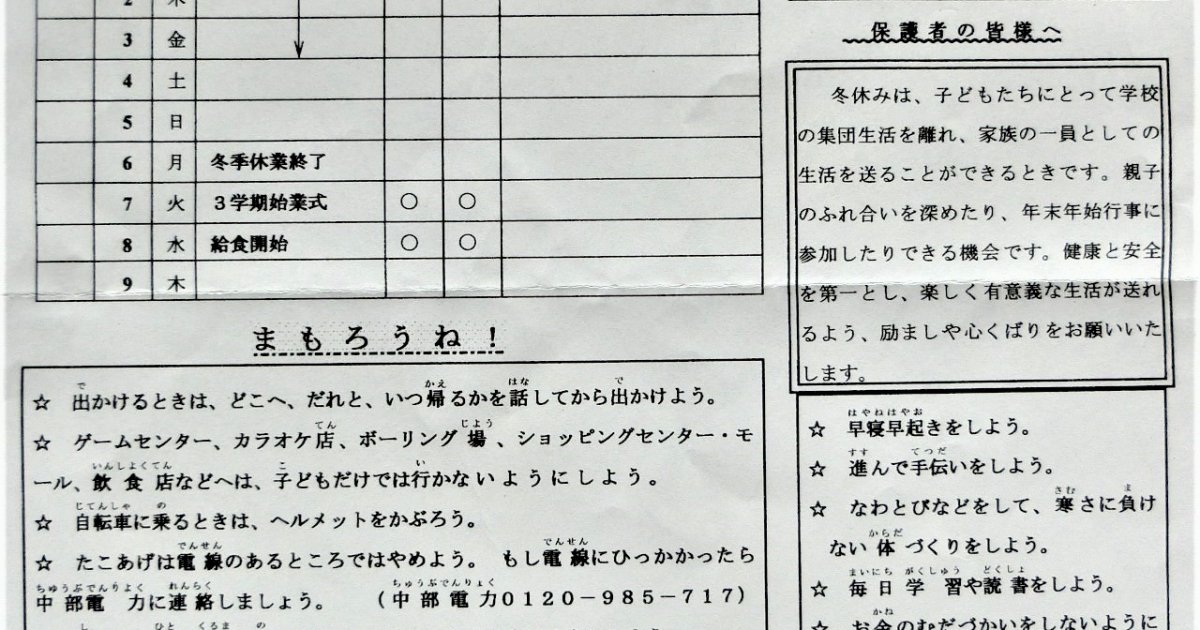 2 木
3 金
4 土
5 日
6 月 冬季休業終了
7 火 3学期始業式 ○ ○
8 水 給食開始 ○ ○
9 木
まもろうね!
☆ 出かけるときは、どこへ、だれと、いつ帰るかを話してから出かけよう。
☆ ゲームセンター、カラオケ店、ボーリング場、ショッピングセンター・モ
ール、飲食店などへは、子どもだけでは行かないようにしよう。
☆ 自転車に乗るときは、ヘルメットをかぶろう。
☆ たこあげは電線のあるところではやめよう。 もし電線にひっかかったら
中部電力に連絡しましょう。 (中部電力0120-985-717)
保護者の皆様へ
冬休みは、子どもたちにとって学校
の集団生活を離れ、家族の一員としての
生活を送ることができるときです。親子
のふれ合いを深めたり、年末年始行事に
参加したりできる機会です。健康と安全
を第一とし、楽しく有意義な生活が送れ
るよう、励ましや心くばりをお願いいた
します。
☆ 早寝早起きをしよう。
☆ 進んで手伝いをしよう。
☆ なわとびなどをして、寒さに負け
ない体づくりをしよう。
☆ 毎日学習や読書をしよう。
☆ お金のむだづかいをしないように